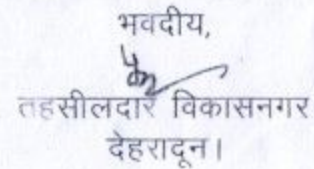 भवदीय,
तहसीलदार विकासनगर
देहरादून।